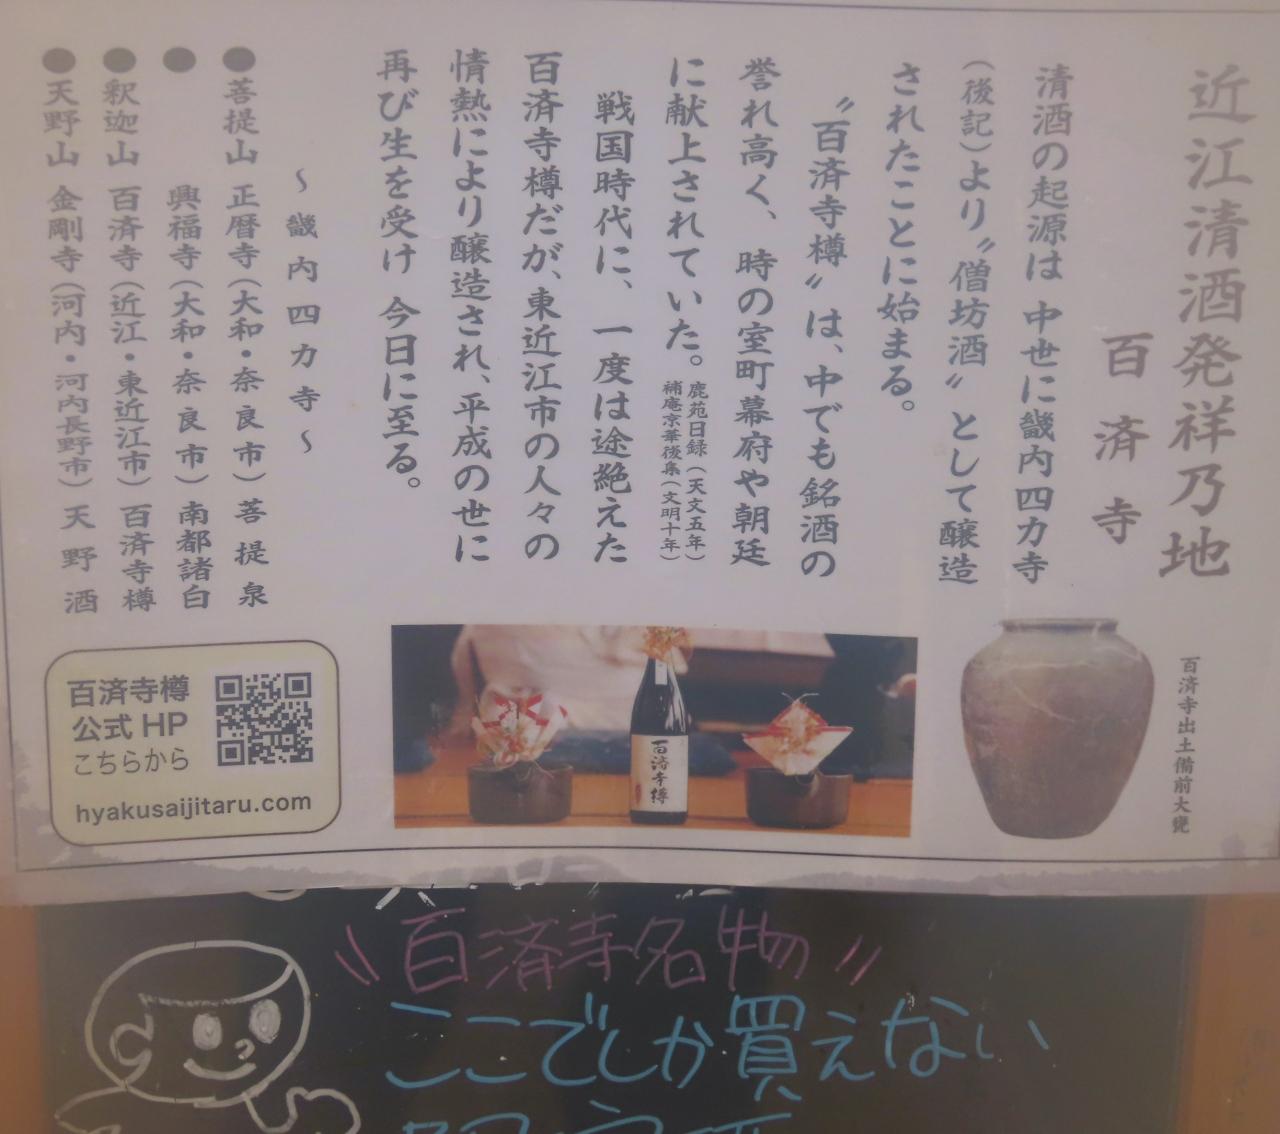 近江清酒発祥乃地
百済寺
清酒の起源は 中世に畿内四カ寺
（後記）より〝僧坊酒〟として醸造
されたことに始まる。
〝百済寺樽〟は、中でも銘酒の
誉れ高く、時の室町幕府や朝廷
に献上されていた。
鹿苑日録（天文五年）
補庵京華後集（文明十年）
戦国時代に、一度は途絶えた
百済寺樽だが、東近江市の人々の
情熱により醸造され、平成の世に
再び生を受け 今日に至る。
～畿内四カ寺～
● 菩提山 正暦寺（大和・奈良市）菩提泉
● 興福寺（大和・奈良市）南都諸白
● 釈迦山 百済寺（近江・東近江市）百済寺樽
● 天野山 金剛寺（河内・河内長野市）天野酒
百済寺出土備前大甕
百済寺樽
百済寺樽
公式 HP
こちらから
hyakusaijitaru.com
百済寺名物
ここでしか買えない